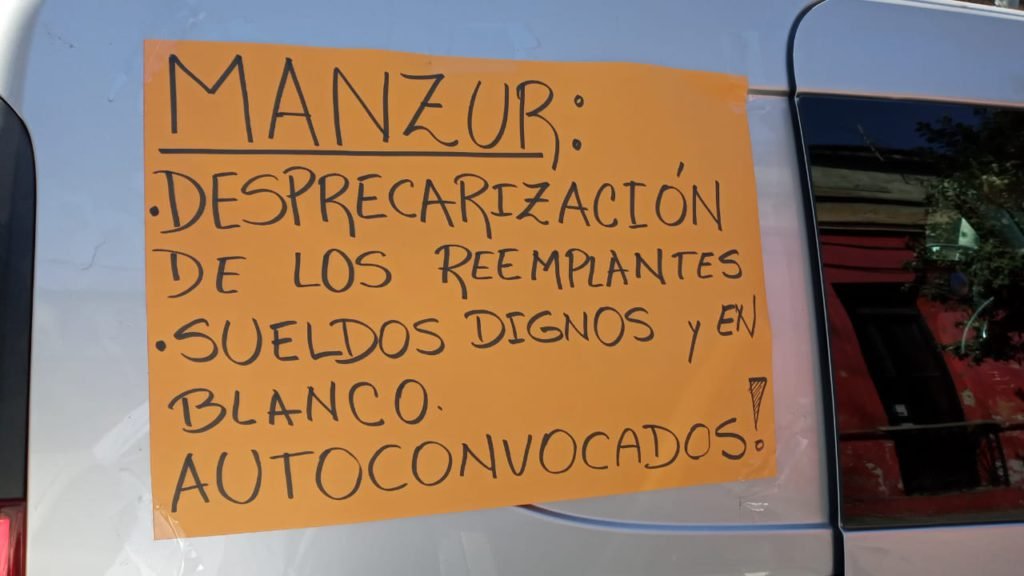 MANZUR:
·DESPRECARIZACIÓN
DE LOS REEMPLANTES
·SUELDOS DIGNOS y EN
BLANCO.
AUTOCONVOCADOS!